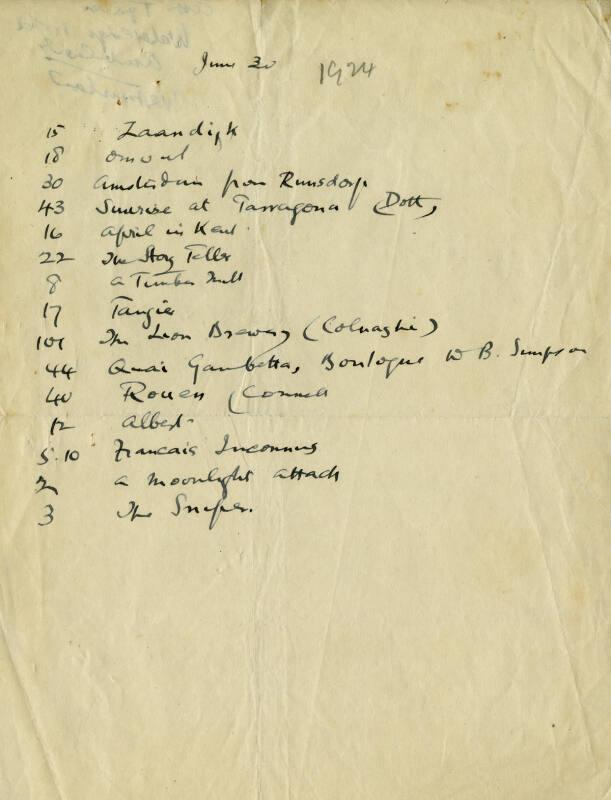 June 30 1924
15 Zaandijk
18
30 Amsterdam from Runsdorp
43 Sunrise at Tarragona (Dott)
16 April in Kent
22 The Story Teller
8 a Timber Mill
17 Tangier
101 The Lion Brewery (Colnaghi)
44 Quai Gambetta, Boulogne W B. Simpson
40 Rouen (Connell
12 Albert
5.10 Francais Inconnus
2 a moonlight attack
3 The Sniper.